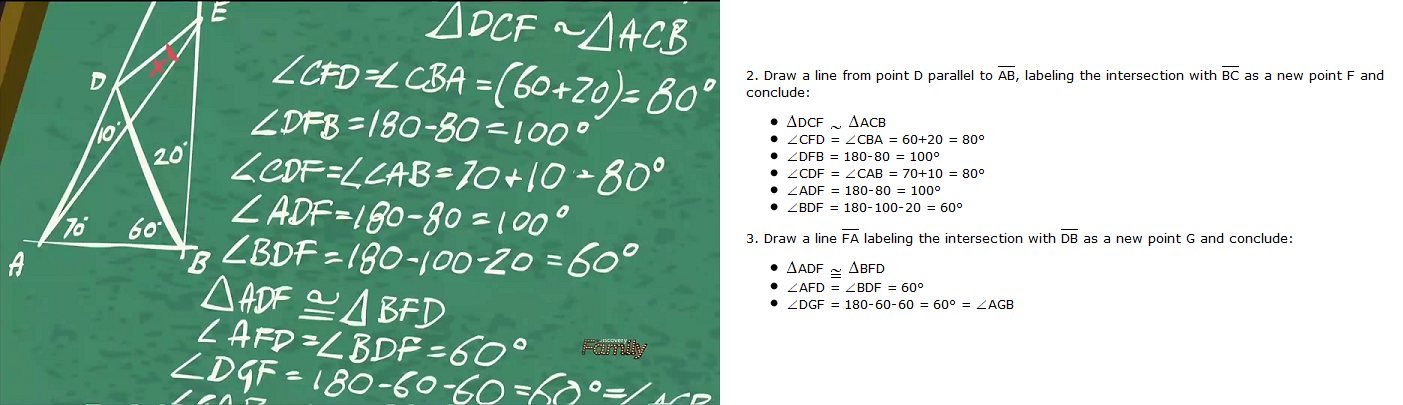 E
ΔDCF ~ ΔACB
x
D
∠CFD=∠CBA=(60+20)=80°
10°
∠DFB=180-80=100°
20°
∠CDF=∠CAB=70+10=80°
∠ADF=180-80=100°
70°
60°
∠BDF=180-100-20=60°
A
B
ΔADF ≅ ΔBFD
∠AFD=∠BDF=60°
Discovery
Family
∠DGF=180-60-60=60°=∠AGB
2. Draw a line from point D parallel to AB, labeling the intersection with BC as a new point F and
conclude:
• ΔDCF ~ ΔACB
• ∠CFD = ∠CBA = 60+20 = 80°
• ∠DFB = 180-80 = 100°
• ∠CDF = ∠CAB = 70+10 = 80°
• ∠ADF = 180-80 = 100°
• ∠BDF = 180-100-20 = 60°
3. Draw a line FA labeling the intersection with DB as a new point G and conclude:
• ΔADF ≅ ΔBFD
• ∠AFD = ∠BDF = 60°
• ∠DGF = 180-60-60 = 60° = ∠AGB